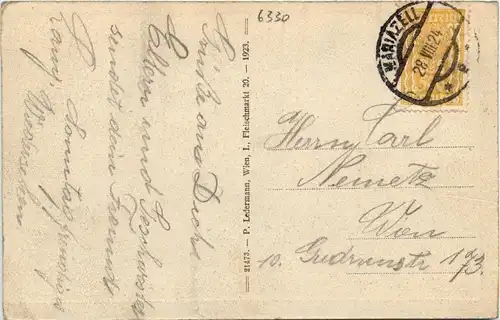 6330
MARIAZELL
28 VIII 24
Grüße an Dich
Eltern und Geschwister
sendet dein Freund
Sonntag
Wiedersehen
21473. — P. Ledermann, Wien, I., Fleischmarkt 20. — 1923.
Herrn Carl
Nemetz
Wien
10. Gudrunstr 173.